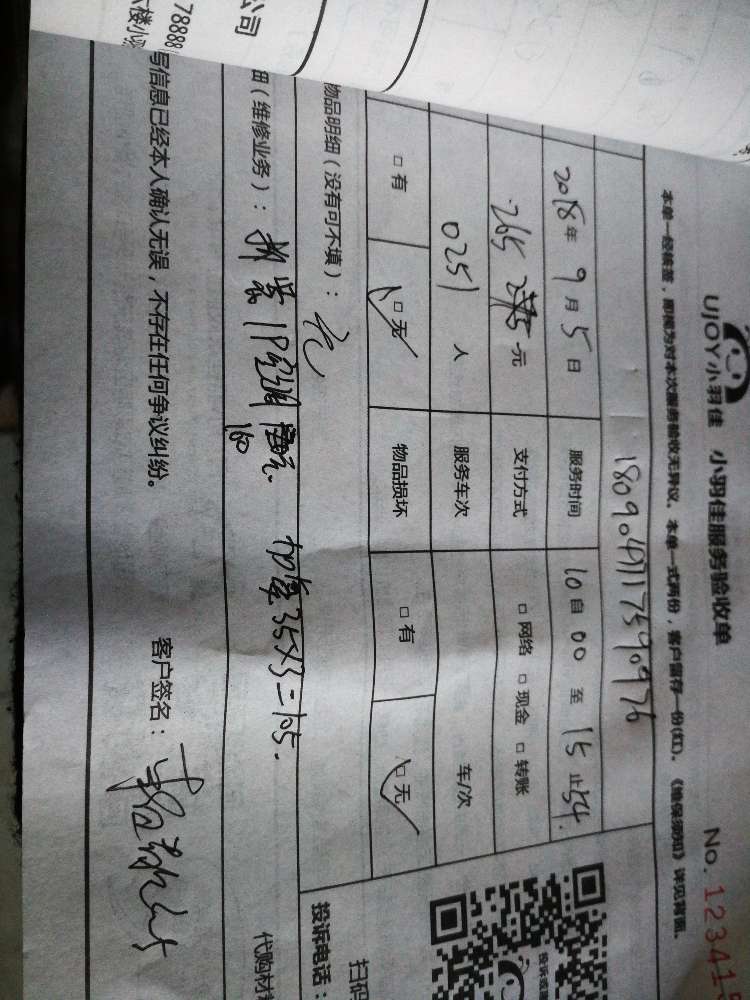 UJOY小羽佳 小羽佳服务验收单 No. 123415
本单一经核签，即视为对本次服务验收无异议。本单一式两份，客户留存一份(红)。《维保须知》详见背面。
1809047117590976
2018年9月5日 服务时间 10自00至15止54
265 元 支付方式 □网络 □现金 □转账
0251 人 服务车次 车/次
□有 □无 物品损坏 □有 □无
物品明细（没有可不填）：无
细（维修业务）：拆装1P空调 160 加氟35×3=105.
写信息已经本人确认无误，不存在任何争议纠纷。 客户签名：
公司
78888
楼小羽
扫码
投诉电话：
代购材